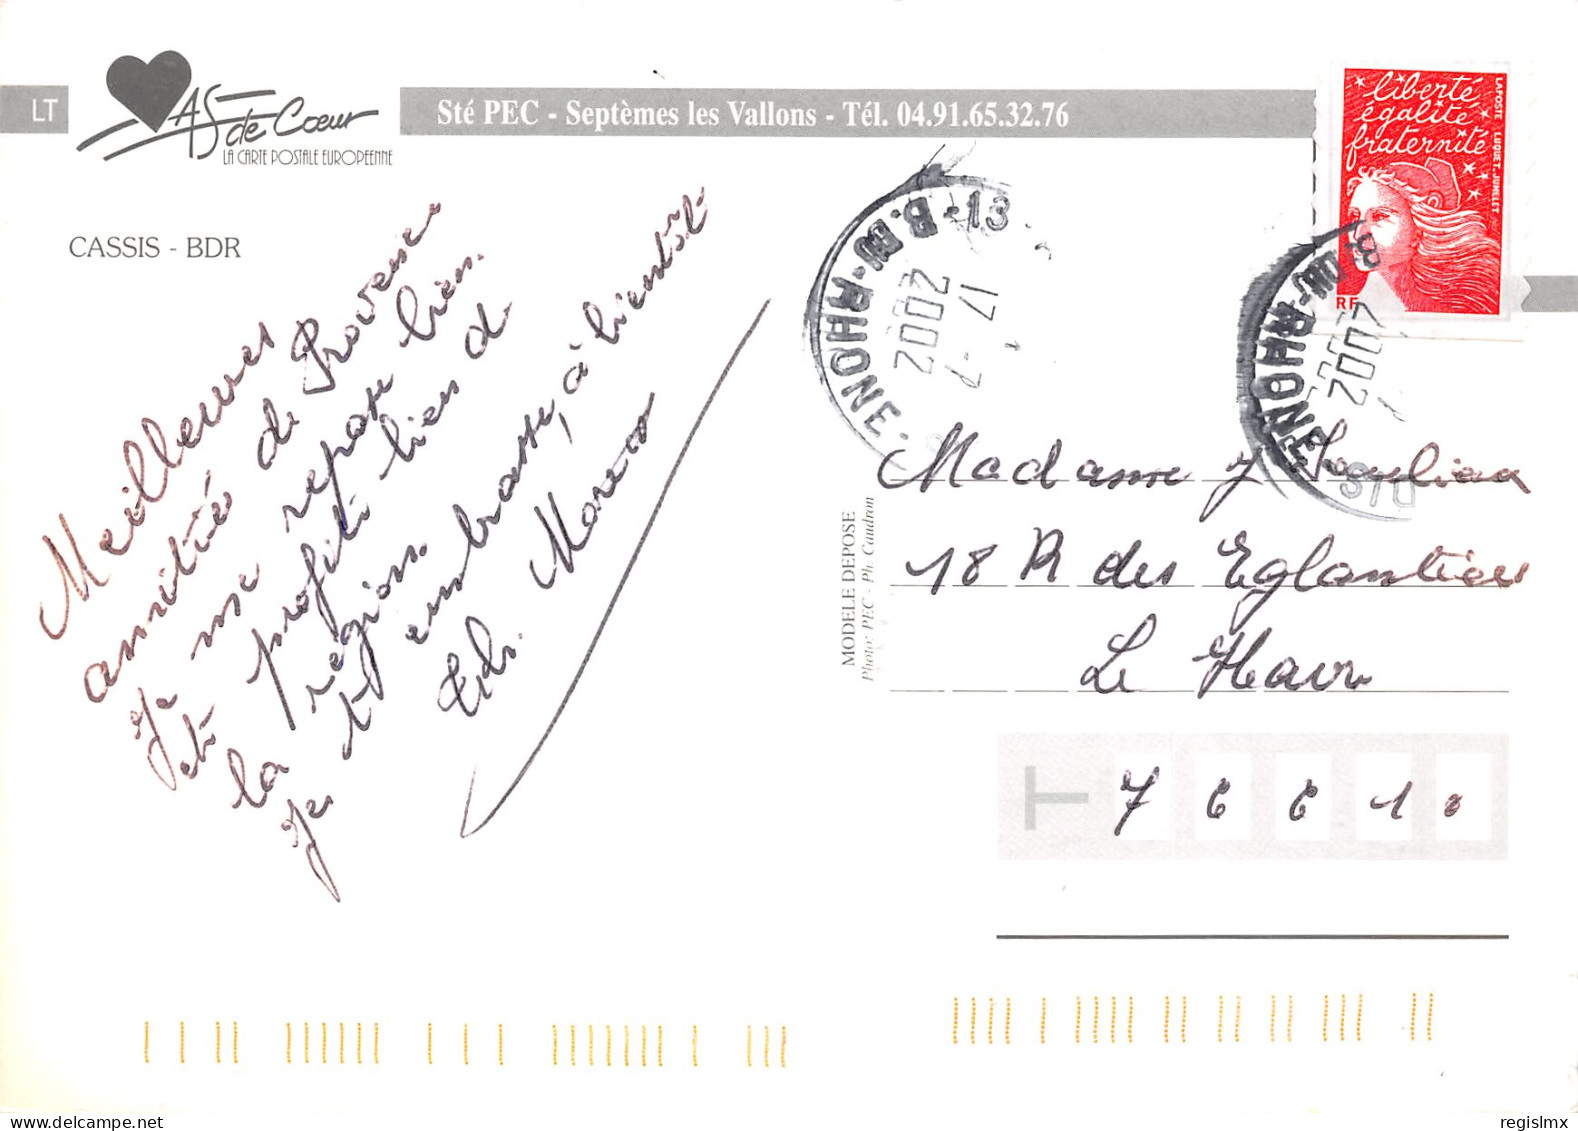 LT
AS de Cœur
LA CARTE POSTALE EUROPEENNE
Sté PEC - Septèmes les Vallons - Tél. 04.91.65.32.76
liberté
égalité
fraternité
LA POSTE LUQUET. JUMELET
RF
CASSIS - BDR
B. DU RHONE. 13
17 - 7
2002
B. DU RHONE
2002
Meilleures
amitiés de Provence
Je me repose bien
et profite bien de
la région.
Je t'embrasse, à bientôt
MODELE DEPOSE
Photo: PEC - Ph. Caudron
Madame J
18 R des Eglantiers
Le Havre
T 7 6 6 1 0
regislmx